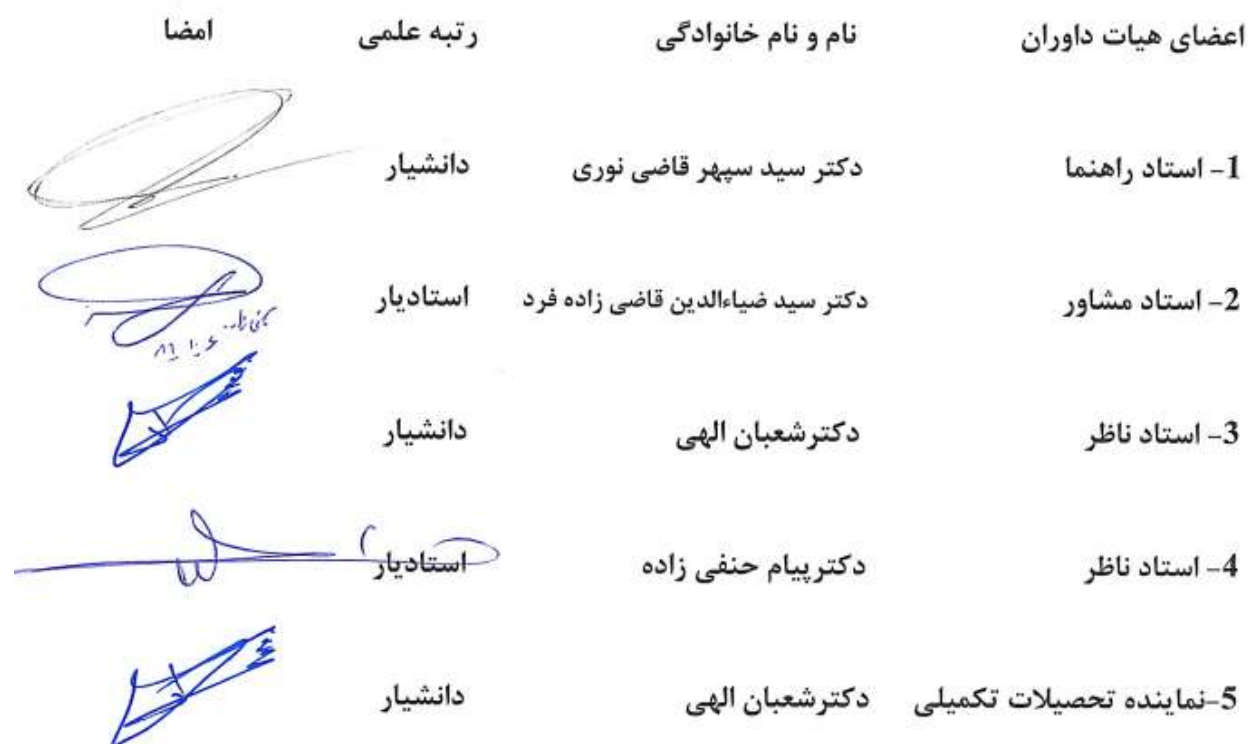 اعضای هیات داوران نام و نام خانوادگی رتبه علمی امضا
1- استاد راهنما دکتر سید سپهر قاضی نوری دانشیار
2- استاد مشاور دکتر سید ضیاءالدین قاضی زاده فرد استادیار
3- استاد ناظر دکترشعبان الهی دانشیار
4- استاد ناظر دکترپیام حنفی زاده استادیار
5-نماینده تحصیلات تکمیلی دکترشعبان الهی دانشیار